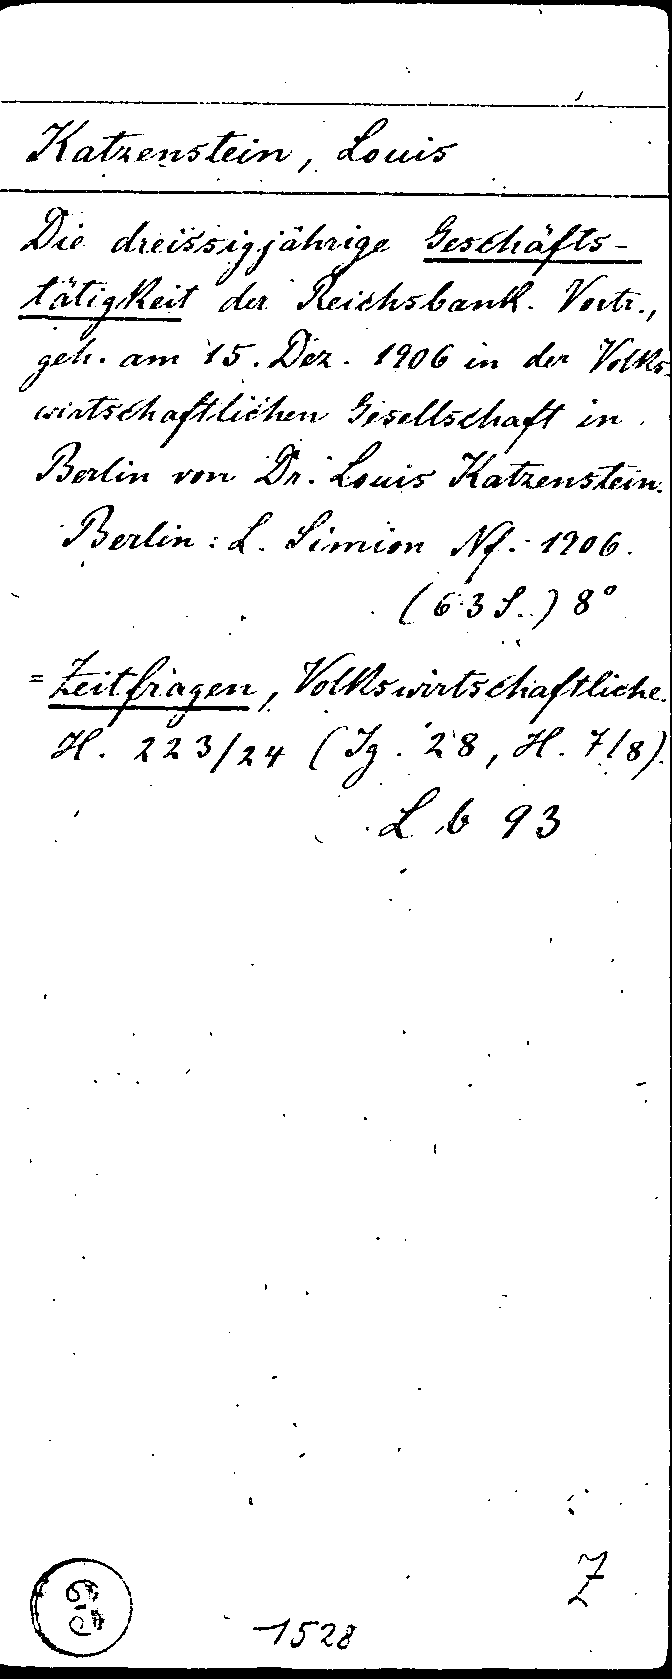 Katzenstein, Louis
Die dreissigjährige Geschäfts-
tätigkeit der Reichsbank. Vortr.,
geh. am 15. Dez. 1906 in der Volks-
wirtschaftlichen Gesellschaft in
Berlin von Dr. Louis Katzenstein.
Berlin: L. Simion Nf. 1906.
(63 S.) 8°
= Zeitfragen, Volkswirtschaftliche.
H. 223/24 (Jg. 28, H. 7/8).
L b 93
Z
1528